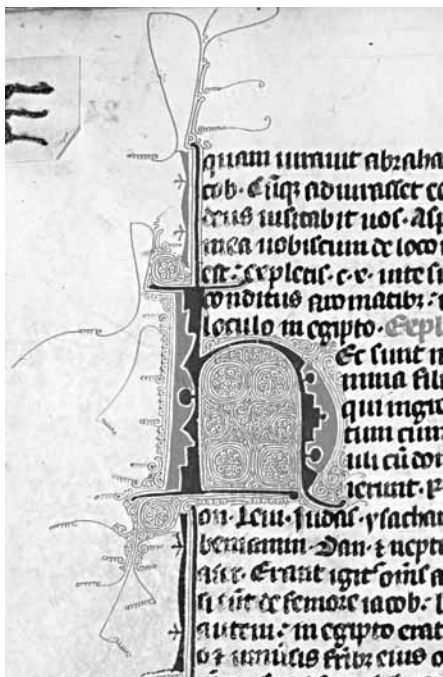 quam iurauit abraha
cob. Cūq; adiurasset e
deus uisitabit uos. Asp
mea uobiscum de loco
est: expletis .c.x. uite s
conditus aromatibꝫ.
loculo in egipto. Expl
H Ec sunt n
mina fili
qui ingre
tum cum
uli cū dom
ierunt. R
on. Leui. Iudas. ysachar
beniamin. Dan. ⁊ nept
aser. Erant igit᷑ om̄s a
si sūt de femore iacob.
autem. in egipto erat
frib; eius